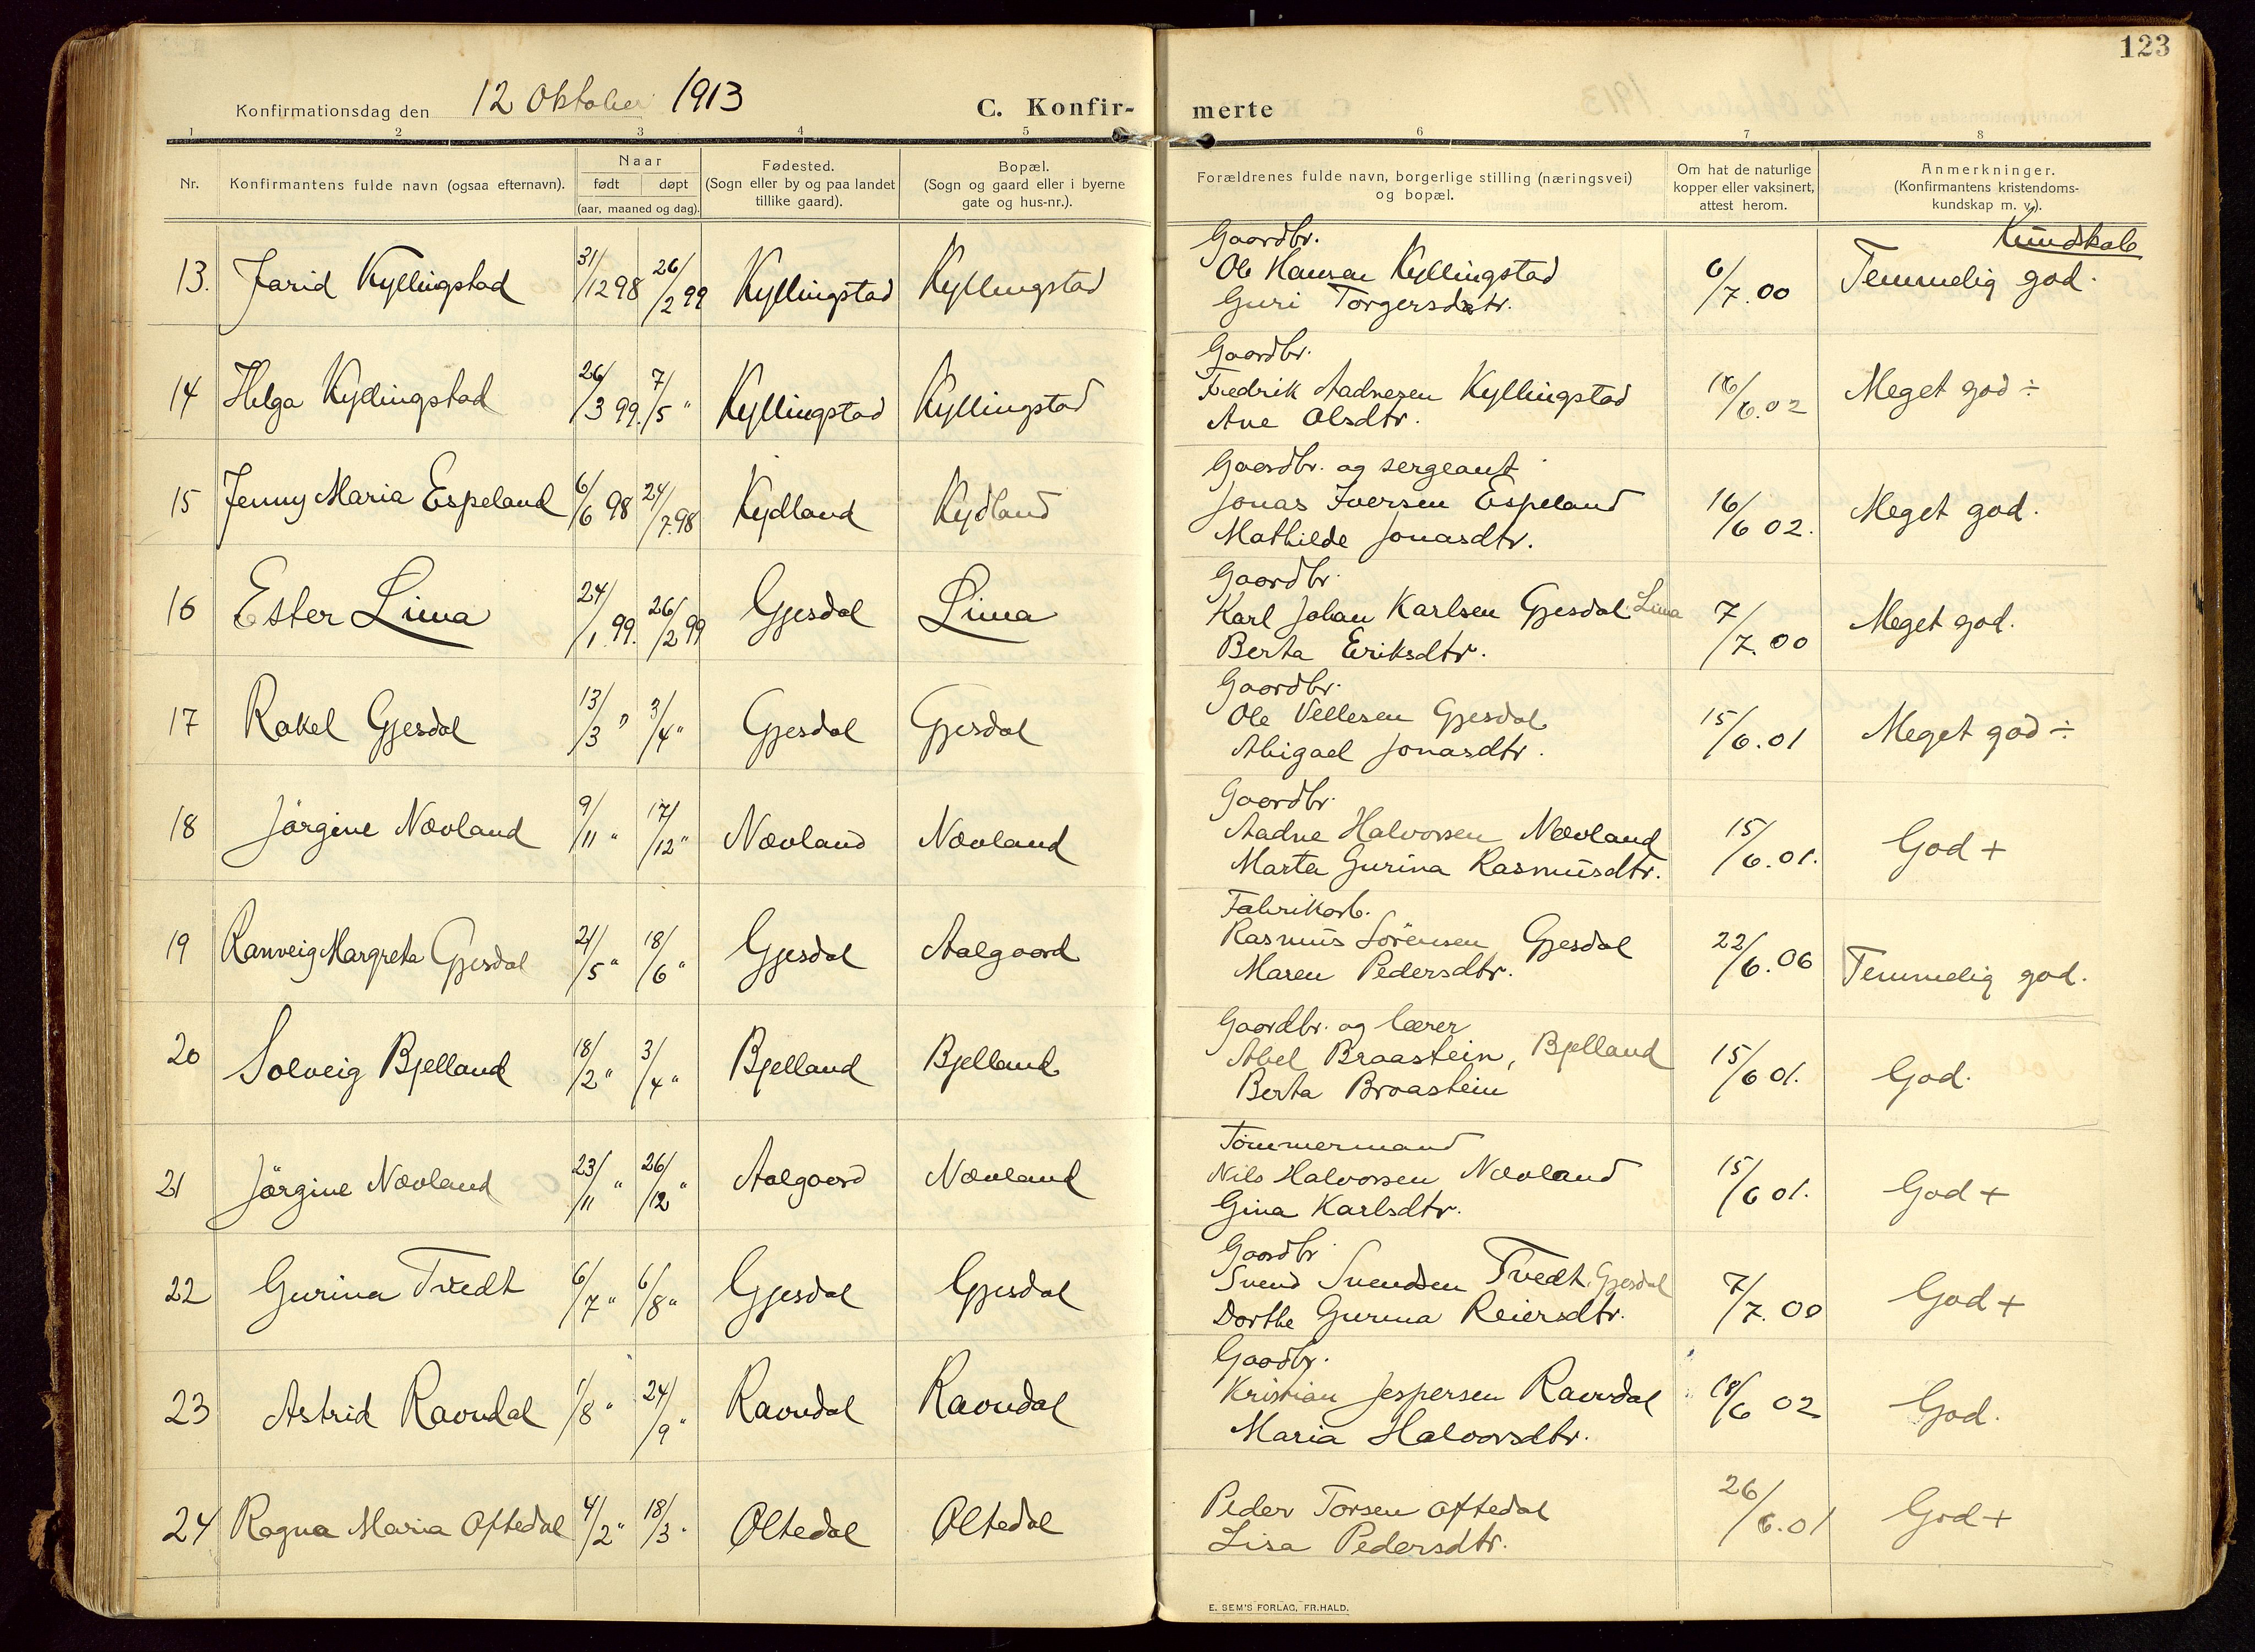 123
Konfirmationsdag den 12 Oktober 1913 C. Konfir- merte
1 2 3 4 5 6 7 8
Nr. Konfirmantens fulde navn (ogsaa efternavn). Naar født døpt (aar, maaned og dag). Fødested. (Sogn eller by og paa landet tillike gaard). Bopæl. (Sogn og gaard eller i byerne gate og hus-nr.). Forældrenes fulde navn, borgerlige stilling (næringsvei) og bopæl. Om hat de naturlige kopper eller vaksinert, attest herom. Anmerkninger. (Konfirmantens kristendoms-kundskap m. v.).
Kundskab
Gaardbr.
13. Jarid Kyllingstad 31/12 98 26/2 99 Kyllingstad Kyllingstad Ole Hansen Kyllingstad 6/7.00 Temmelig god.
Guri Torgersdtr.
Gaardbr.
14 Helga Kyllingstad 26/3 99. 7/5 " Kyllingstad Kyllingstad Fredrik Aadnesen Kyllingstad 16/6.02 Meget god ÷
Ane Olsdtr.
Gaardbr. og sergeant
15 Jenny Maria Espeland 6/6 98 24/7.98 Kydland Kydland Jonas Iversen Espeland 16/6 02. Meget god.
Mathilde Jonasdtr.
Gaardbr.
16 Ester Lima 24/1.99. 26/2 99 Gjesdal Lima Karl Johan Karlsen Gjesdal. Lima 7/7.00 Meget god.
Berta Eriksdtr.
Gaardbr.
17 Rakel Gjesdal 13/3 " 3/4 " Gjesdal Gjesdal Ole Vellesen Gjesdal 15/6.01 Meget god ÷
Abigael Jonasdtr.
Gaardbr.
18 Jörgine Nævland 9/11 " 17/12 " Nævland Nævland Aadne Halvorsen Nævland 15/6.01. God +
Marta Gurina Rasmusdtr.
Fabrikarb.
19 Ranveig Margreta Gjesdal 21/5 " 18/6 " Gjesdal Aalgaard Rasmus Sörensen Gjesdal 22/6.06 Temmelig god.
Maren Pedersdtr.
Gaardbr. og lærer
20 Solveig Bjelland 18/2 " 3/4 " Bjelland Bjelland Abel Braastein, Bjelland 15/6 01. God.
Berta Braastein
Tömmermand
21 Jörgine Nævland 23/11 " 26/12 " Aalgaard Nævland Nils Halvorsen Nævland 15/6 01. God +
Gina Karlsdtr.
Gaardbr
22 Gurina Tvedt 6/7 " 6/8 " Gjesdal Gjesdal Svend Svendsen Tvedt. Gjesdal 7/7.00 God +
Dorthe Gurina Reiersdtr.
Gaardbr.
23 Astrid Ravndal 1/8 " 24/9 " Ravndal Ravndal Kristian Jespersen Ravndal 18/6 02 God.
Maria Halvorsdtr.
24 Ragna Maria Oftedal 4/2 " 18/3 " Oltedal Oltedal Peder Torsen Oftedal 26/6.01 God +
Lisa Pedersdtr.
E. SEM'S FORLAG, FR.HALD.